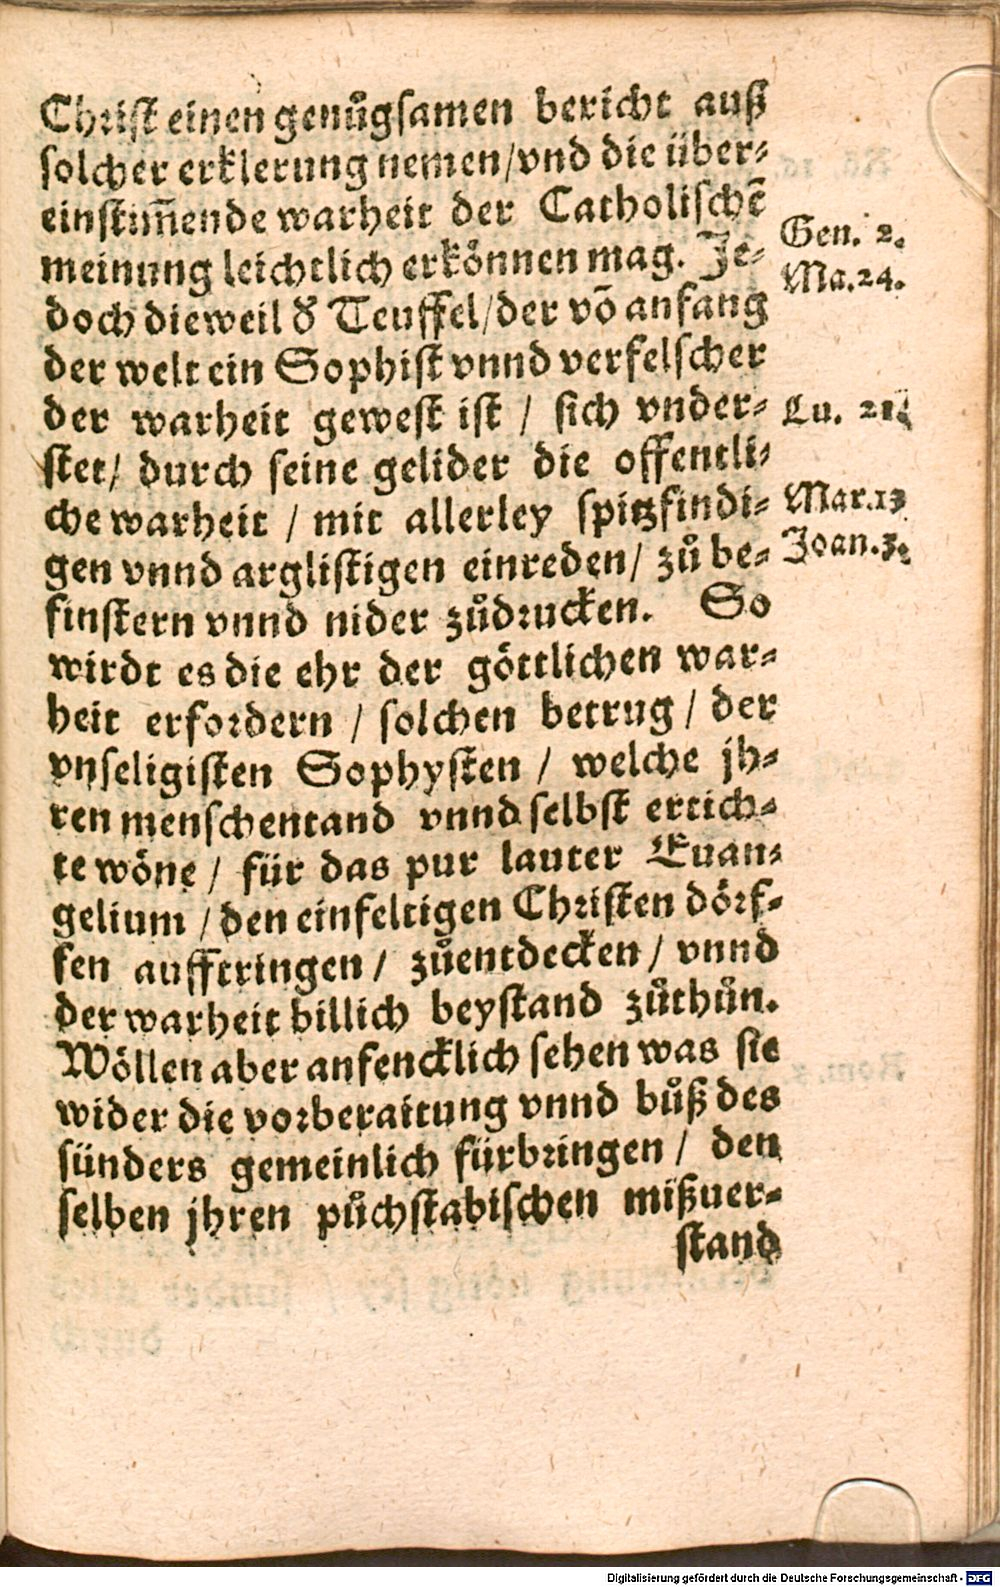 Chriſt einen genuͦgſamen bericht auß
ſolcher erklerung nemen/vnd die über⸗
einſtim̅ende warheit der Catholiſchē
meinung leichtlich erkönnen mag. Je⸗
doch dieweil dˀ Teuffel/der vō anfang
der welt ein Sophiſt vnnd verfelſcher
der warheit geweſt iſt / ſich vnder⸗
ſtet/ durch ſeine gelider die offentli⸗
che warheit / mit allerley ſpitzfindi⸗
gen vnnd argliſtigen einreden/ zuͦ be⸗
finſtern vnnd nider zuͦdrucken. So
wirdt es die ehr der göttlichen war⸗
heit erfordern / ſolchen betrug / der
vnſeligiſten Sophyſten / welche jh⸗
ren menſchentand vnnd ſelbſt ertich⸗
te wöne / für das pur lauter Euan⸗
gelium / den einfeltigen Chriſten dörf⸗
fen aufftringen / zuͦentdecken / vnnd
der warheit billich beyſtand zuͦthuͦn.
Wöllen aber anfencklich ſehen was ſie
wider die vorberaitung vnnd buͦß des
ſünders gemeinlich fürbringen / den
ſelben jhren puͦchſtabiſchen mißuer⸗
ſtand
Gen. 2.
Ma.24.
Lu. 21.
Mar.13
Joan.3.
Digitalisierung gefördert durch die Deutsche Forschungsgemeinschaft - DFG